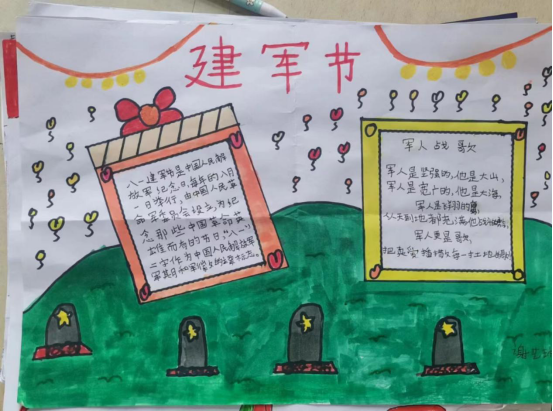 建军节
八一建军节是中国人民解
放军纪念日,每年的八月
一日举行,由中国人民革
命军委员会设立,为纪
念那些中国革命英
雄而有的节日,"八一"
二字作为中国人民解放军
军旗和军徽的主要标志。
军人战歌
军人是坚强的,他是大山,
军人是宽广的,他是大海,
军人是翱翔的鹰,
从天到地都充满他
军人更是歌,
把真爱播撒在每一寸土地